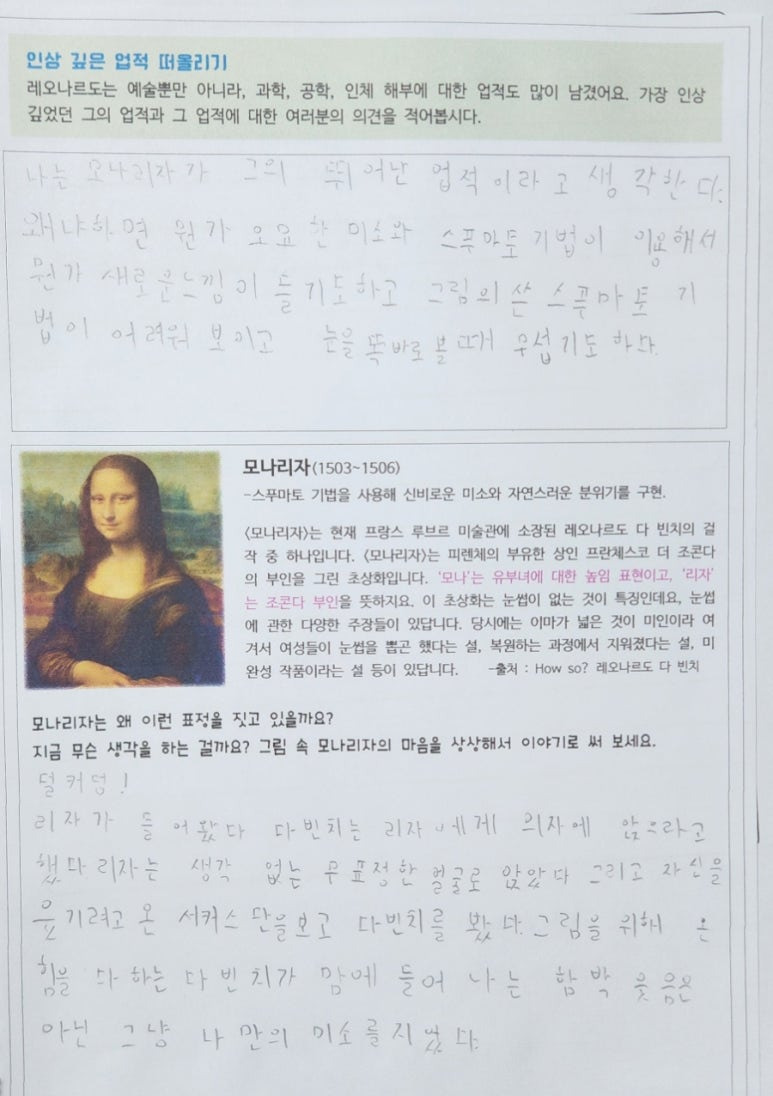 인상 깊은 업적 떠올리기
레오나르도는 예술뿐만 아니라, 과학, 공학, 인체 해부에 대한 업적도 많이 남겼어요. 가장 인상
깊었던 그의 업적과 그 업적에 대한 여러분의 의견을 적어봅시다.
나는 모나리자가 그의 뛰어난 업적이라고 생각한다.
왜냐하면 뭔가 오묘한 미소와 스푸마토 기법이 이용해서
뭔가 새로운느낌이 들기도하고 그림의 쓴 스푸마토 기
법이 어려워 보이고 눈을 똑바로 볼때 무섭기도 하다.
모나리자(1503~1506)
-스푸마토 기법을 사용해 신비로운 미소와 자연스러운 분위기를 구현.
<모나리자>는 현재 프랑스 루브르 미술관에 소장된 레오나르도 다 빈치의 걸
작 중 하나입니다. <모나리자>는 피렌체의 부유한 상인 프란체스코 더 조콘다
의 부인을 그린 초상화입니다. '모나'는 유부녀에 대한 높임 표현이고, '리자'
는 조콘다 부인을 뜻하지요. 이 초상화는 눈썹이 없는 것이 특징인데요, 눈썹
에 관한 다양한 주장들이 있답니다. 당시에는 이마가 넓은 것이 미인이라 여
겨서 여성들이 눈썹을 뽑곤 했다는 설, 복원하는 과정에서 지워졌다는 설, 미
완성 작품이라는 설 등이 있답니다. -출처 : How so? 레오나르도 다 빈치
모나리자는 왜 이런 표정을 짓고 있을까요?
지금 무슨 생각을 하는 걸까요? 그림 속 모나리자의 마음을 상상해서 이야기로 써 보세요.
덜커덩!
리자가 들어왔다 다빈치는 리자에게 의자에 앉으라고
했다 리자는 생각 없는 무표정한 얼굴로 앉았다 그리고 자신을
웃기려고 온 서커스 단을보고 다빈치를 봤다. 그림을 위해 온
힘을 다하는 다빈치가 맘에 들어 나는 함박 웃음은
아닌 그냥 나만의 미소를지었다.